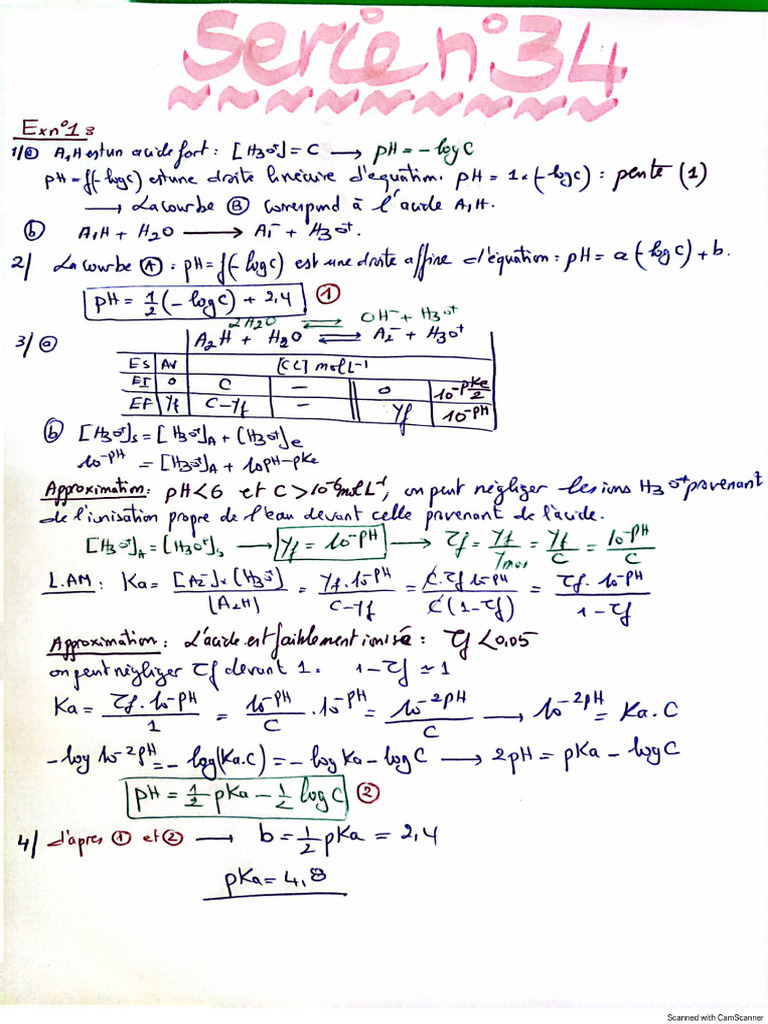 Serie n°34
Ex n°1:
1/ⓐ A₁H est un acide fort : [H3O+] = C → pH = -logC
pH = f(-logC) est une droite linéaire d'équation. pH = 1.(-logC) : pente (1)
→ La courbe Ⓑ correspond à l'acide A₁H.
ⓑ A₁H + H2O → A₁⁻ + H3O+.
2/ La courbe Ⓐ : pH = f(-logC) est une droite affine d'équation : pH = a(-logC) + b.
pH = 1/2 (-logC) + 2,4 ①
2H2O ⇌ OH⁻ + H3O+
3/ⓐ A2H + H2O ⇌ A2⁻ + H3O+
ES AV [CC] molL⁻¹
EI 0 C - 0 10^-pKe/2
EF yf C-yf - yf 10^-pH
ⓑ [H3O+]s = [H3O+]A + [H3O+]e
10^-pH = [H3O+]A + 10^pH-pKe
Approximation : pH < 6 et C > 10⁻⁶molL⁻¹, on peut négliger les ions H3O+ provenant
de l'ionisation propre de l'eau devant celle provenant de l'acide.
[H3O+]A = [H3O+]s → yf = 10^-pH → τf = yf/ymax = yf/C = 10^-pH/C
L.AM : Ka = [A2⁻].[H3O+]/[A2H] = yf.10^-pH/C-yf = C.τf 10^-pH/C(1-τf) = τf.10^-pH/1-τf
Approximation : L'acide est faiblement ionisé : τf < 0,05
on peut négliger τf devant 1. 1-τf ≃ 1
Ka = τf.10^-pH/1 = 10^-pH/C . 10^-pH = 10^-2pH/C → 10^-2pH = Ka.C
-log 10^-2pH = -log(Ka.C) = -logKa - logC → 2pH = pKa - logC
pH = 1/2 pKa - 1/2 logC ②
4/ d'après ① et ② → b = 1/2 pKa = 2,4
pKa = 4,8
Scanned with CamScanner